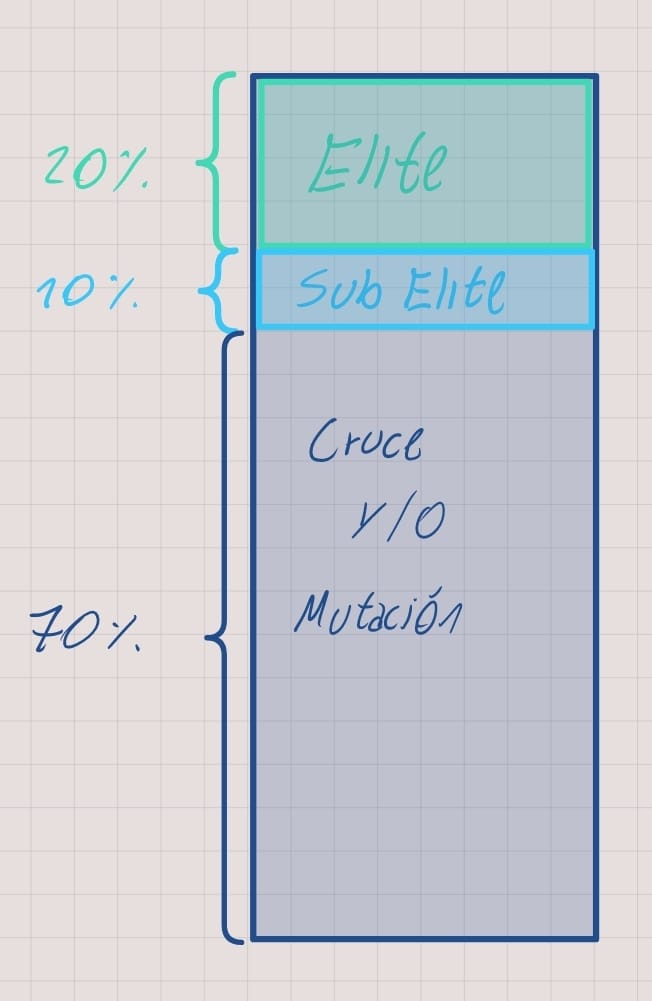 20%
Elite
10%
Sub Elite
Cruce
Y/O
Mutación
70%